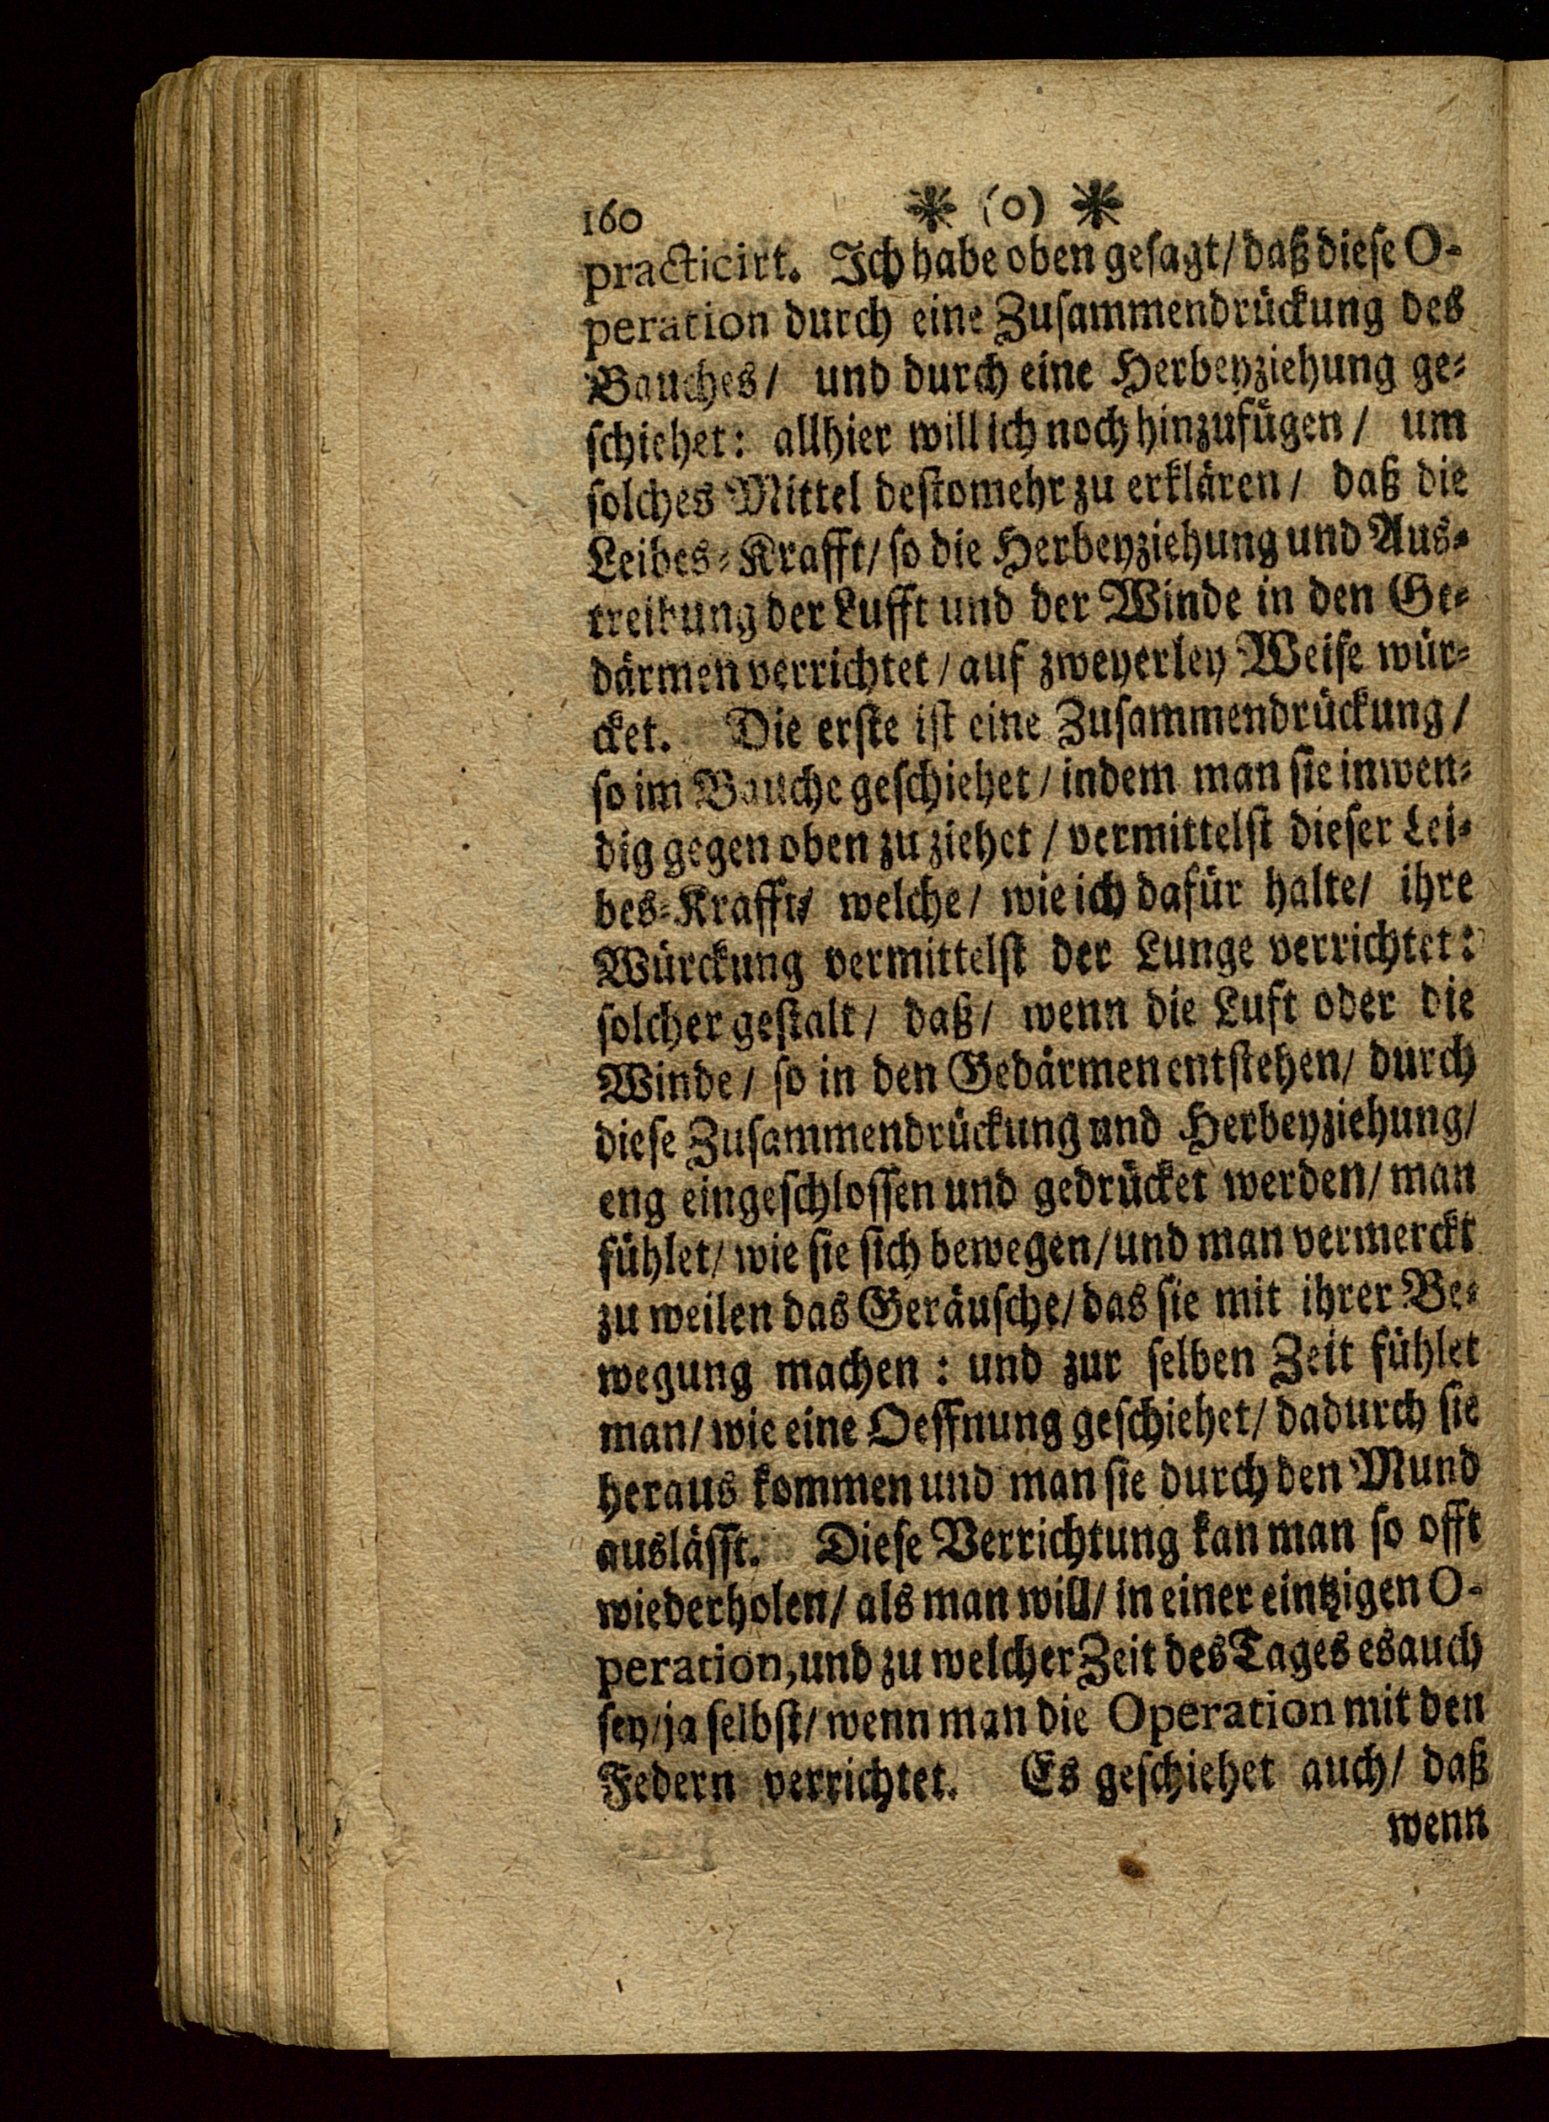 160 * (0) *
practicirt. Ich habe oben gesagt/ daß diese O-
peration durch eine Zusammendrückung des
Bauches/ und durch eine Herbeyziehung ge-
schiehet: allhier will ich noch hinzufügen/ um
solches Mittel destomehr zu erklären/ daß die
Leibes-Krafft/ so die Herbeyziehung und Aus-
treibung der Lufft und der Winde in den Ge-
därmen verrichtet/ auf zweyerley Weise wür-
cket. Die erste ist eine Zusammendrückung/
so im Bauche geschiehet/ indem man sie inwen-
dig gegen oben zu ziehet/ vermittelst dieser Lei-
bes-Krafft/ welche/ wie ich dafür halte/ ihre
Würckung vermittelst der Lunge verrichtet:
solcher gestalt/ daß/ wenn die Luft oder die
Winde/ so in den Gedärmen entstehen/ durch
diese Zusammendrückung und Herbeyziehung/
eng eingeschlossen und gedrücket werden/ man
fühlet/ wie sie sich bewegen/ und man vermerckt
zu weilen das Geräusche/ das sie mit ihrer Be-
wegung machen: und zur selben Zeit fühlet
man/ wie eine Oeffnung geschiehet/ dadurch sie
heraus kommen und man sie durch den Mund
auslässt. Diese Verrichtung kan man so offt
wiederholen/ als man will/ in einer eintzigen O-
peration, und zu welcher Zeit des Tages es auch
sey/ ja selbst/ wenn man die Operation mit den
Federn verrichtet. Es geschiehet auch/ daß
wenn